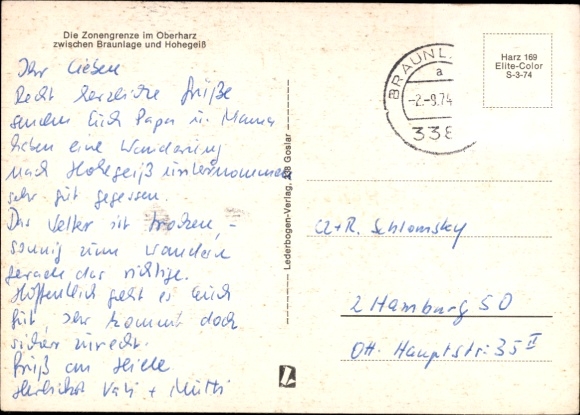 Die Zonengrenze im Oberharz
zwischen Braunlage und Hohegeiß
Ihr Lieben
Recht herzliche Grüße
senden Euch Papa u. Mama
haben eine Wanderung
nach Hohegeiß unternommen
sehr gut gegessen.
Das Wetter ist trocken, -
sonnig zum Wandern
gerade das richtige.
Hoffentlich geht es Euch
gut, Ihr kommt doch
sicher zurecht.
Gruß an Heide
Herzlichst Vati + Mutti
Lederbogen-Verlag, 338 Goslar
BRAUNL
a
-2.-9.74
338
Harz 169
Elite-Color
S-3-74
A+R. Schlomsky
2 Hamburg 50
Ott. Hauptstr. 35 II